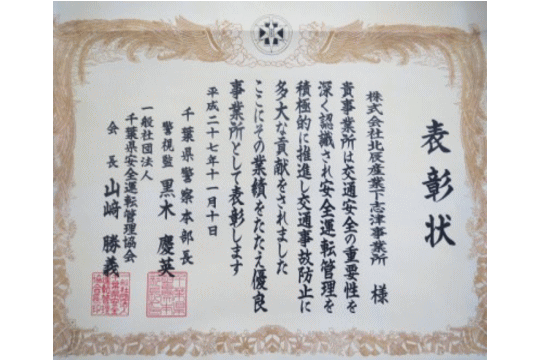 表彰状
株式会社北辰産業下志津事業所 様
貴事業所は交通安全の重要性を
深く認識され安全運転管理を
積極的に推進し交通事故防止に
多大な貢献をされました
ここにその業績をたたえ優良
事業所として表彰します
平成二十七年十一月十日
千葉県警察本部長
警視監 黒木慶英
一般社団法人
千葉県安全運転管理協会
会長 山﨑勝義